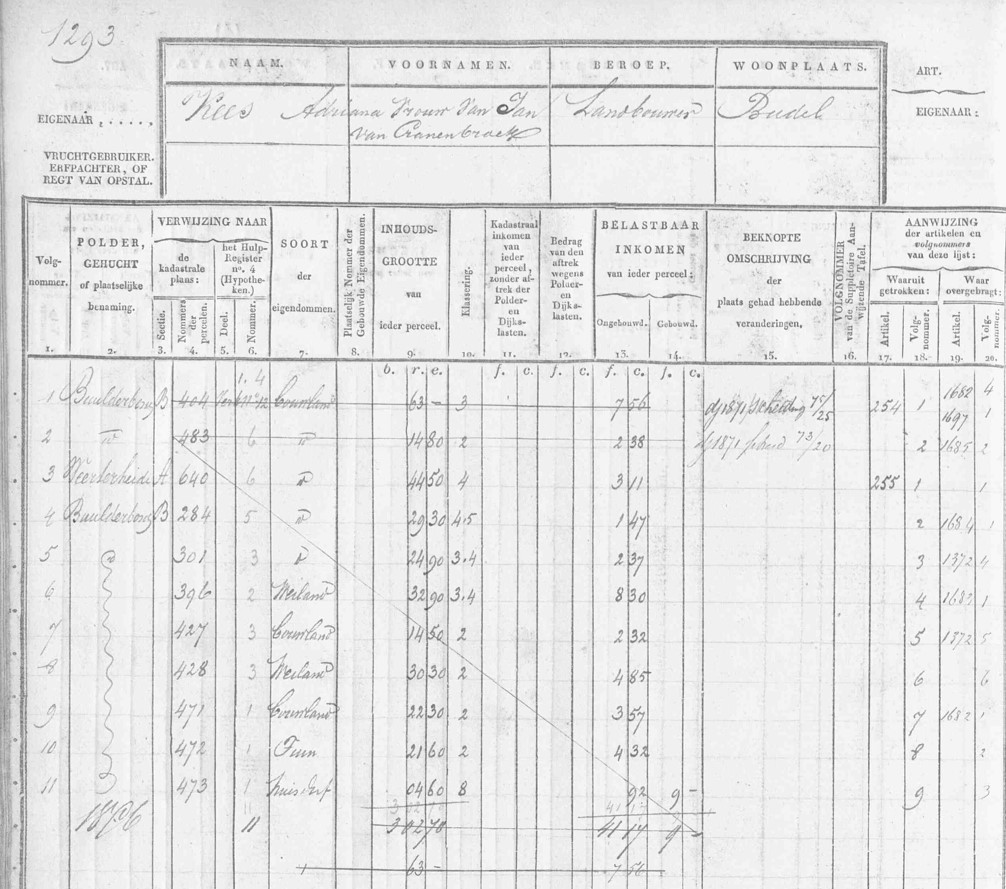 1293
NAAM. VOORNAMEN. BEROEP. WOONPLAATS.
ART.
EIGENAAR, . . . . . Kees Adriana Vrouw Van Jan Landbouwer Budel EIGENAAR:
van Cranenbroek
VRUCHTGEBRUIKER.
ERFPACHTER, OF
REGT VAN OPSTAL.
Volg-nommer.
POLDER, GEHUCHT of plaatselijke benaming.
VERWIJZING NAAR
de kadastrale plans:
Sectie.
Nommers der perceelen.
het Hulp-Register no. 4 (Hypotheken.)
Deel.
Nommer.
SOORT der eigendommen.
Plaatselijk Nommer der Gebouwde Eigendommen.
INHOUDS-GROOTTE van ieder perceel.
Klassering.
Kadastraal inkomen van ieder perceel, zonder aftrek der Polder- en Dijks-lasten.
Bedrag van den aftrek wegens Polder- en Dijks-lasten.
BELASTBAAR INKOMEN van ieder perceel:
Ongebouwd. Gebouwd.
BEKNOPTE OMSCHRIJVING der plaats gehad hebbende veranderingen,
VOLGNOMMER van de Suppletoire Aanwijzende Tafel.
AANWIJZING
der artikelen en
volgnommers
van deze lijst:
Waaruit getrokken: Waar overgebragt:
Artikel. Volg-nommer. Artikel. Volg-nommer.
1. 2. 3. 4. 5. 6. 7. 8. 9. 10. 11. 12. 13. 14. 15. 16. 17. 18. 19. 20.
b. r. e. f. c. f. c. f. c. f. c.
1 Buulderbroek B 404 Bouwland 63 – 3 7 56 dj 1871 Scheiding 75/25 254 1 1682 4
1697 1
2 " 483 6 " 14 80 2 2 38 dj 1871 73/20 2 1685 2
3 Weerterheide A 640 6 " 44 50 4 3 11 255 1 1
4 Buulderbroek B 284 5 " 29 30 4.5 1 47 2 1684 1
5 301 3 " 24 90 3.4 2 37 3 1372 4
6 396 2 Weiland 32 90 3.4 8 30 4 1683 1
7 427 3 Bouwland 14 50 2 2 32 5 1372 5
8 428 3 Weiland 30 30 2 4 85 6 6
9 471 1 Bouwland 22 30 2 3 57 7 1682 1
10 472 1 Tuin 21 60 2 4 32 8 2
11 473 1 huis erf 04 60 8 92 9 – 9 3
1876 11 3 02 70 41 17 9 –
63 – 7 56